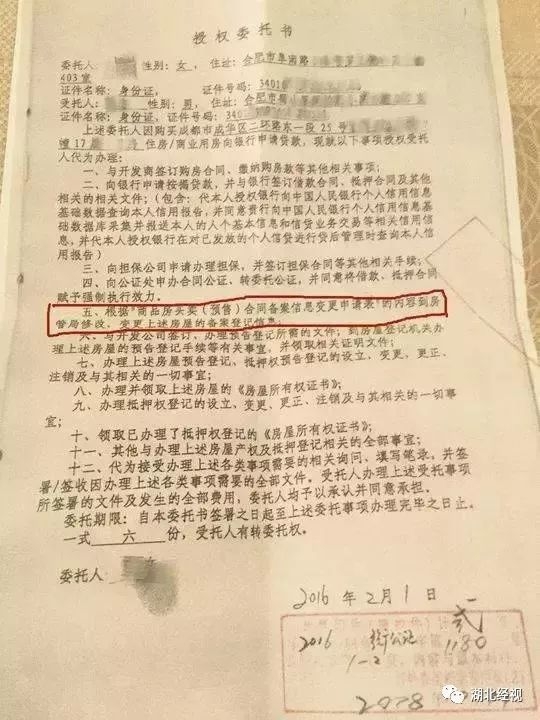 授权委托书
委托人 性别：女， 住址：合肥市阜南路
403室
证件名称：身份证， 证件号码：34010
受托人 性别：男，住址：合肥市
证件名称：身份证，证件号码：340
上述委托人因购买成都市成华区二环路东一段25号
幢17 住房/商业用房向银行申请贷款，现就以下事项授权受托
人代为办理：
一、与开发商签订购房合同、缴纳购房款等其他相关事项；
二、向银行申请按揭贷款，并与银行签订借款合同、抵押合同及其他
相关的相关文件；（包含：代本人授权银行向中国人民银行个人信用信息
基础数据查询本人信用报告；并同意贵行向中国人民银行个人信用信息基
础数据库采集并报送本人的个人基本信息和信贷业务交易等相关信用信
息，并代本人授权银行在对已发放的个人信贷进行贷后管理时查询本人信
用报告）
三、向担保公司申请办理担保，并签订担保合同等其他相关手续；
四、向公证处申办合同公证、转委托公证，并同意将借款、抵押合同
赋予强制执行效力。
五、根据"商品房买卖（预售）合同备案信息变更申请表"的内容到房
管局修改、变更上述房屋的备案登记信息
六、与开发公司签订、办理预告登记所需的文件；到房屋登记机关办
理上述房屋的预告登记手续等有关事宜，并领取相关证明文件；
七、办理上述房屋预告登记，抵押权预告登记的设立、变更、更正、
注销及与其相关的一切事宜；
八、办理并领取上述房屋的《房屋所有权证书》；
九、办理抵押权登记的设立、变更、更正、注销及与其相关的一切事
宜；
十、领取已办理了抵押权登记的《房屋所有权证书》；
十一、其他与办理上述房屋产权及抵押登记相关的全部事宜；
十二、代为接受办理上述各类事项需要的相关询问、填写笔录，并签
署/签收因办理上述各类事项需要的全部文件。受托人办理上述受托事项
所签署的文件及发生的全部费用，委托人均予以承认并同意承担。
委托期限：自本委托书签署之日起至上述委托事项办理完毕之日止。
一式 六 份，受托人有转委托权。
委托人：
2016年2月1日
2016
1180
湖北经视